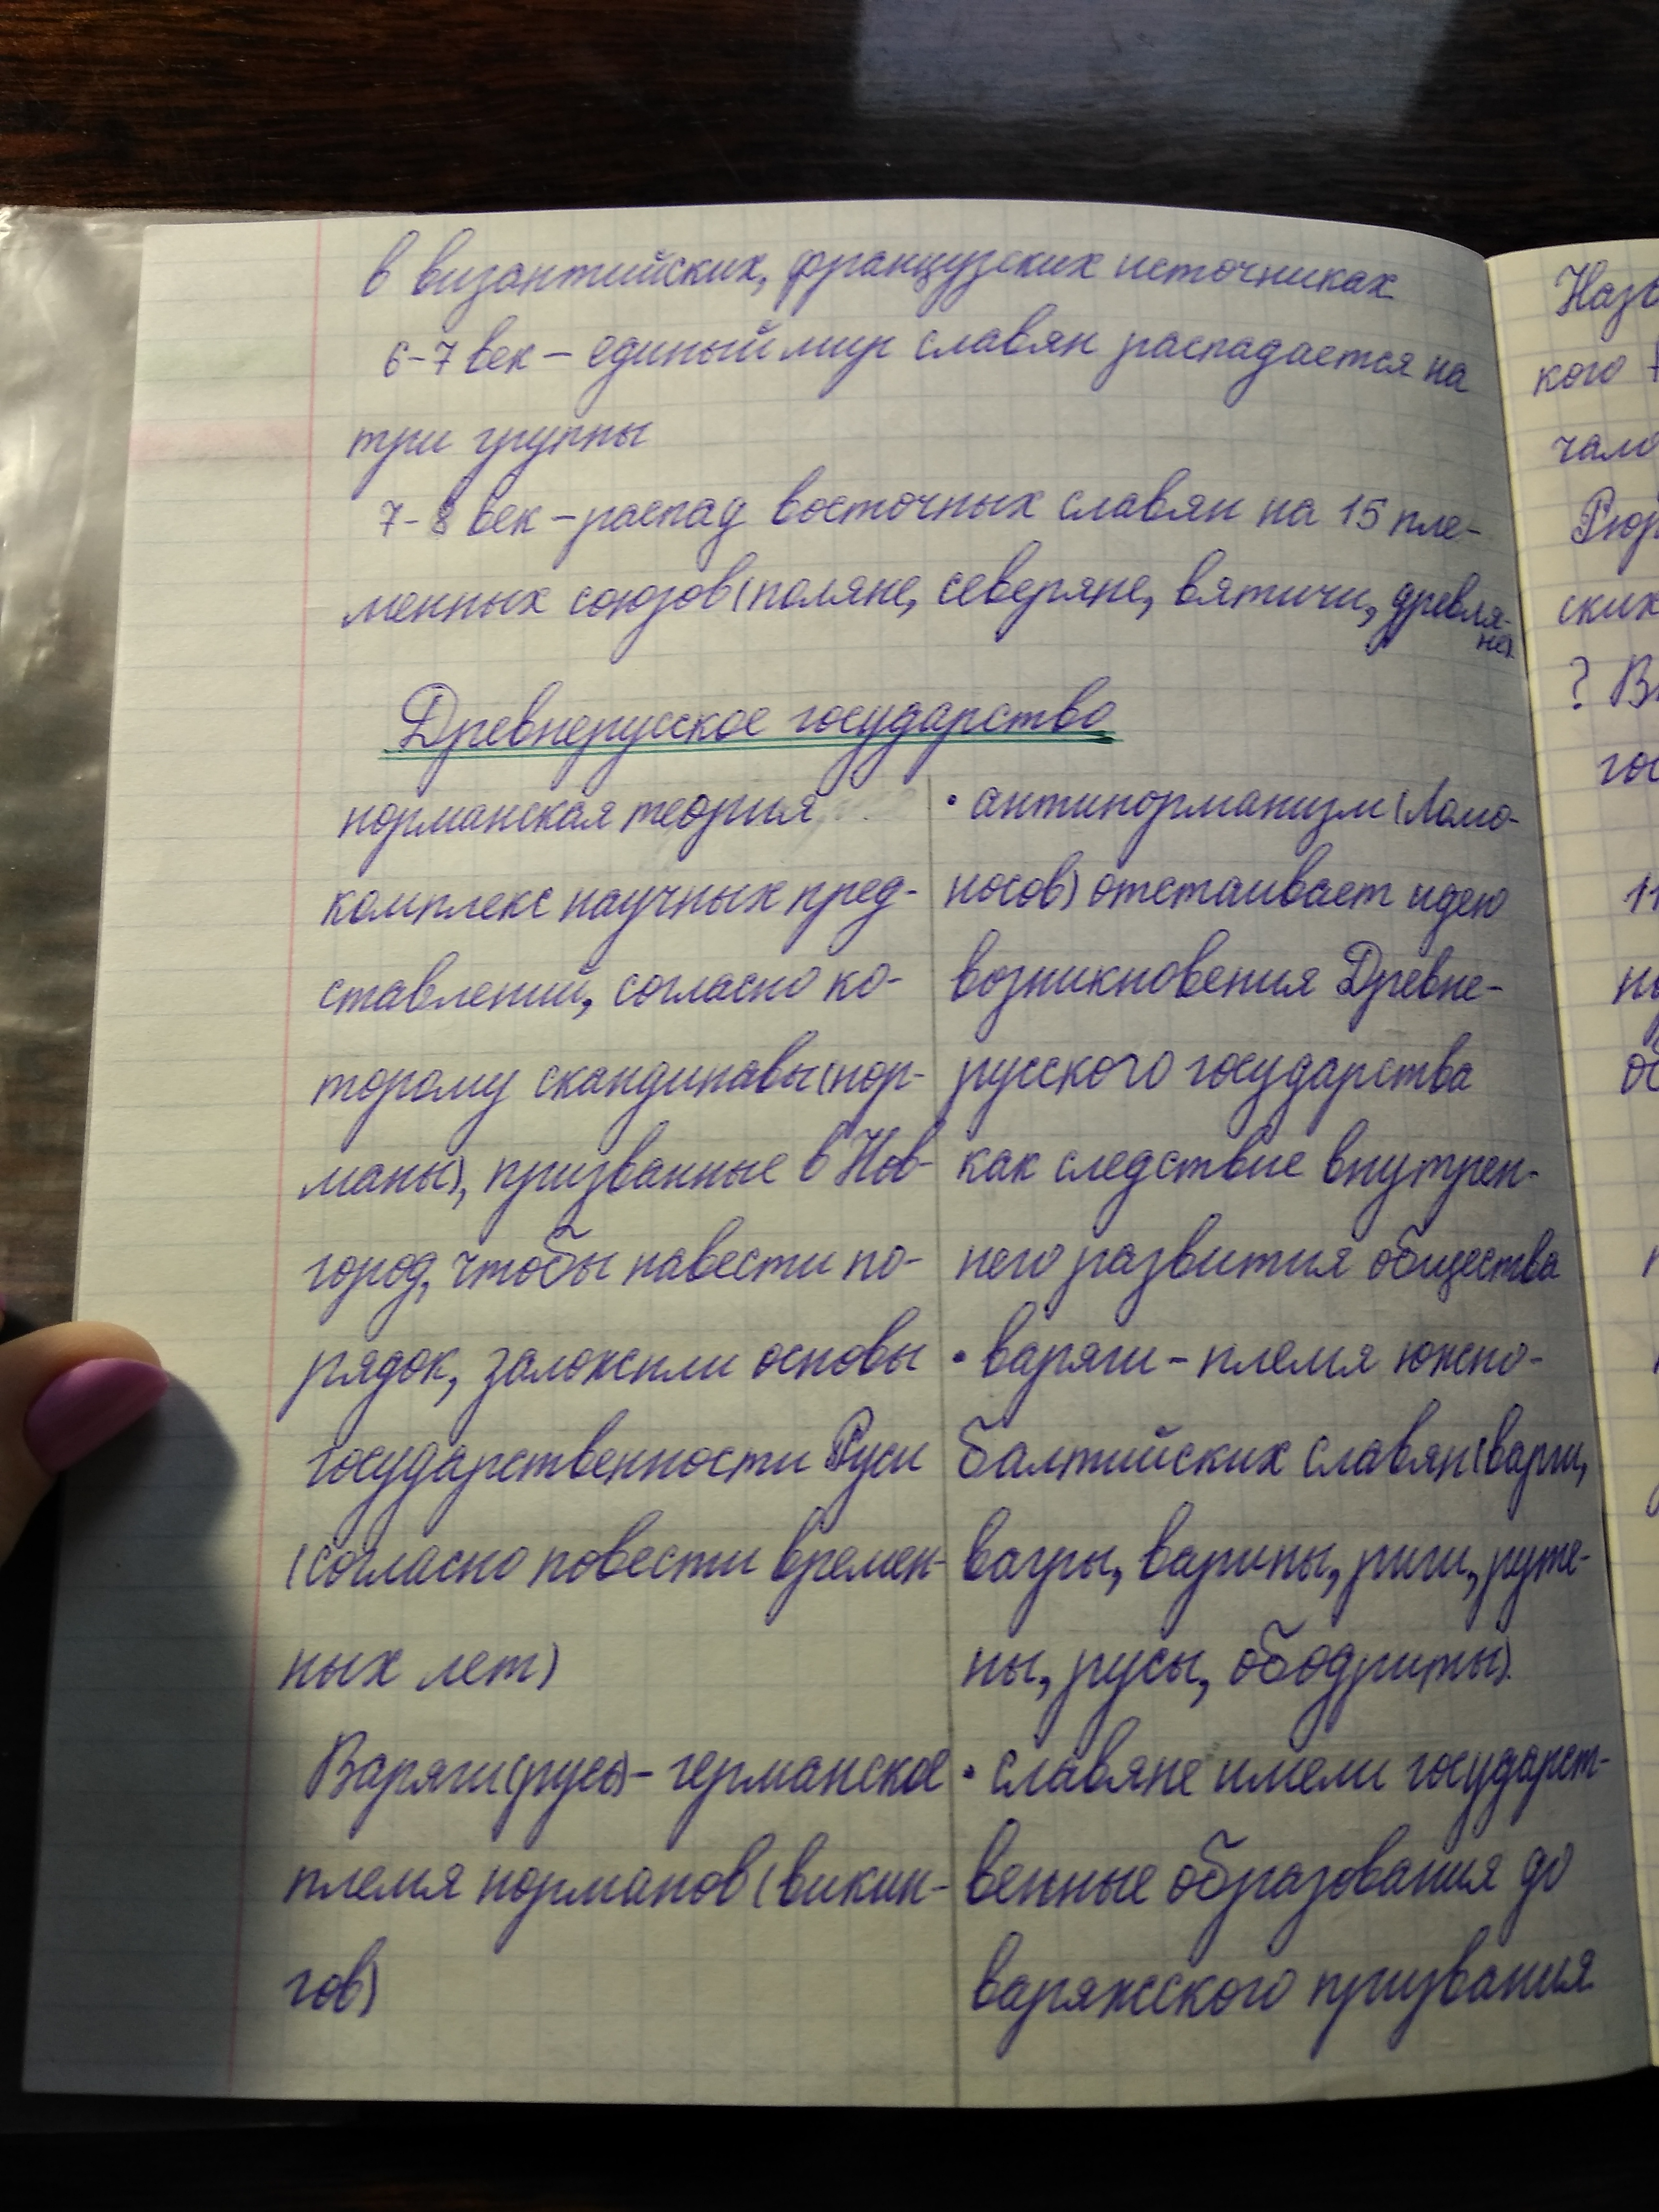 в византийских, французских источниках
6-7 век – единый мир славян распадается на
три группы
7-8 век – распад восточных славян на 15 пле-
менных союзов (поляне, северяне, вятичи, древля-
не)
Древнерусское государство
норманская теория
комплекс научных пред-
ставлений, согласно ко-
торому скандинавы (нор-
маны), призванные в Нов-
город, чтобы навести по-
рядок, заложили основы
государственности Руси
(согласно повести времен-
ных лет)
Варяги (русь) – германское
племя норманов (викин-
гов)
• антинорманизм (Ломо-
носов) отстаивает идею
возникновения Древне-
русского государства
как следствие внутрен-
него развития общества
• варяги – племя южно-
балтийских славян (варги,
вагры, варины, риги, руте-
ны, русы, ободриты).
• славяне имели государст-
венные образования до
варяжского призвания
Назв
кого
чало
Рюр
ских
? В
гос